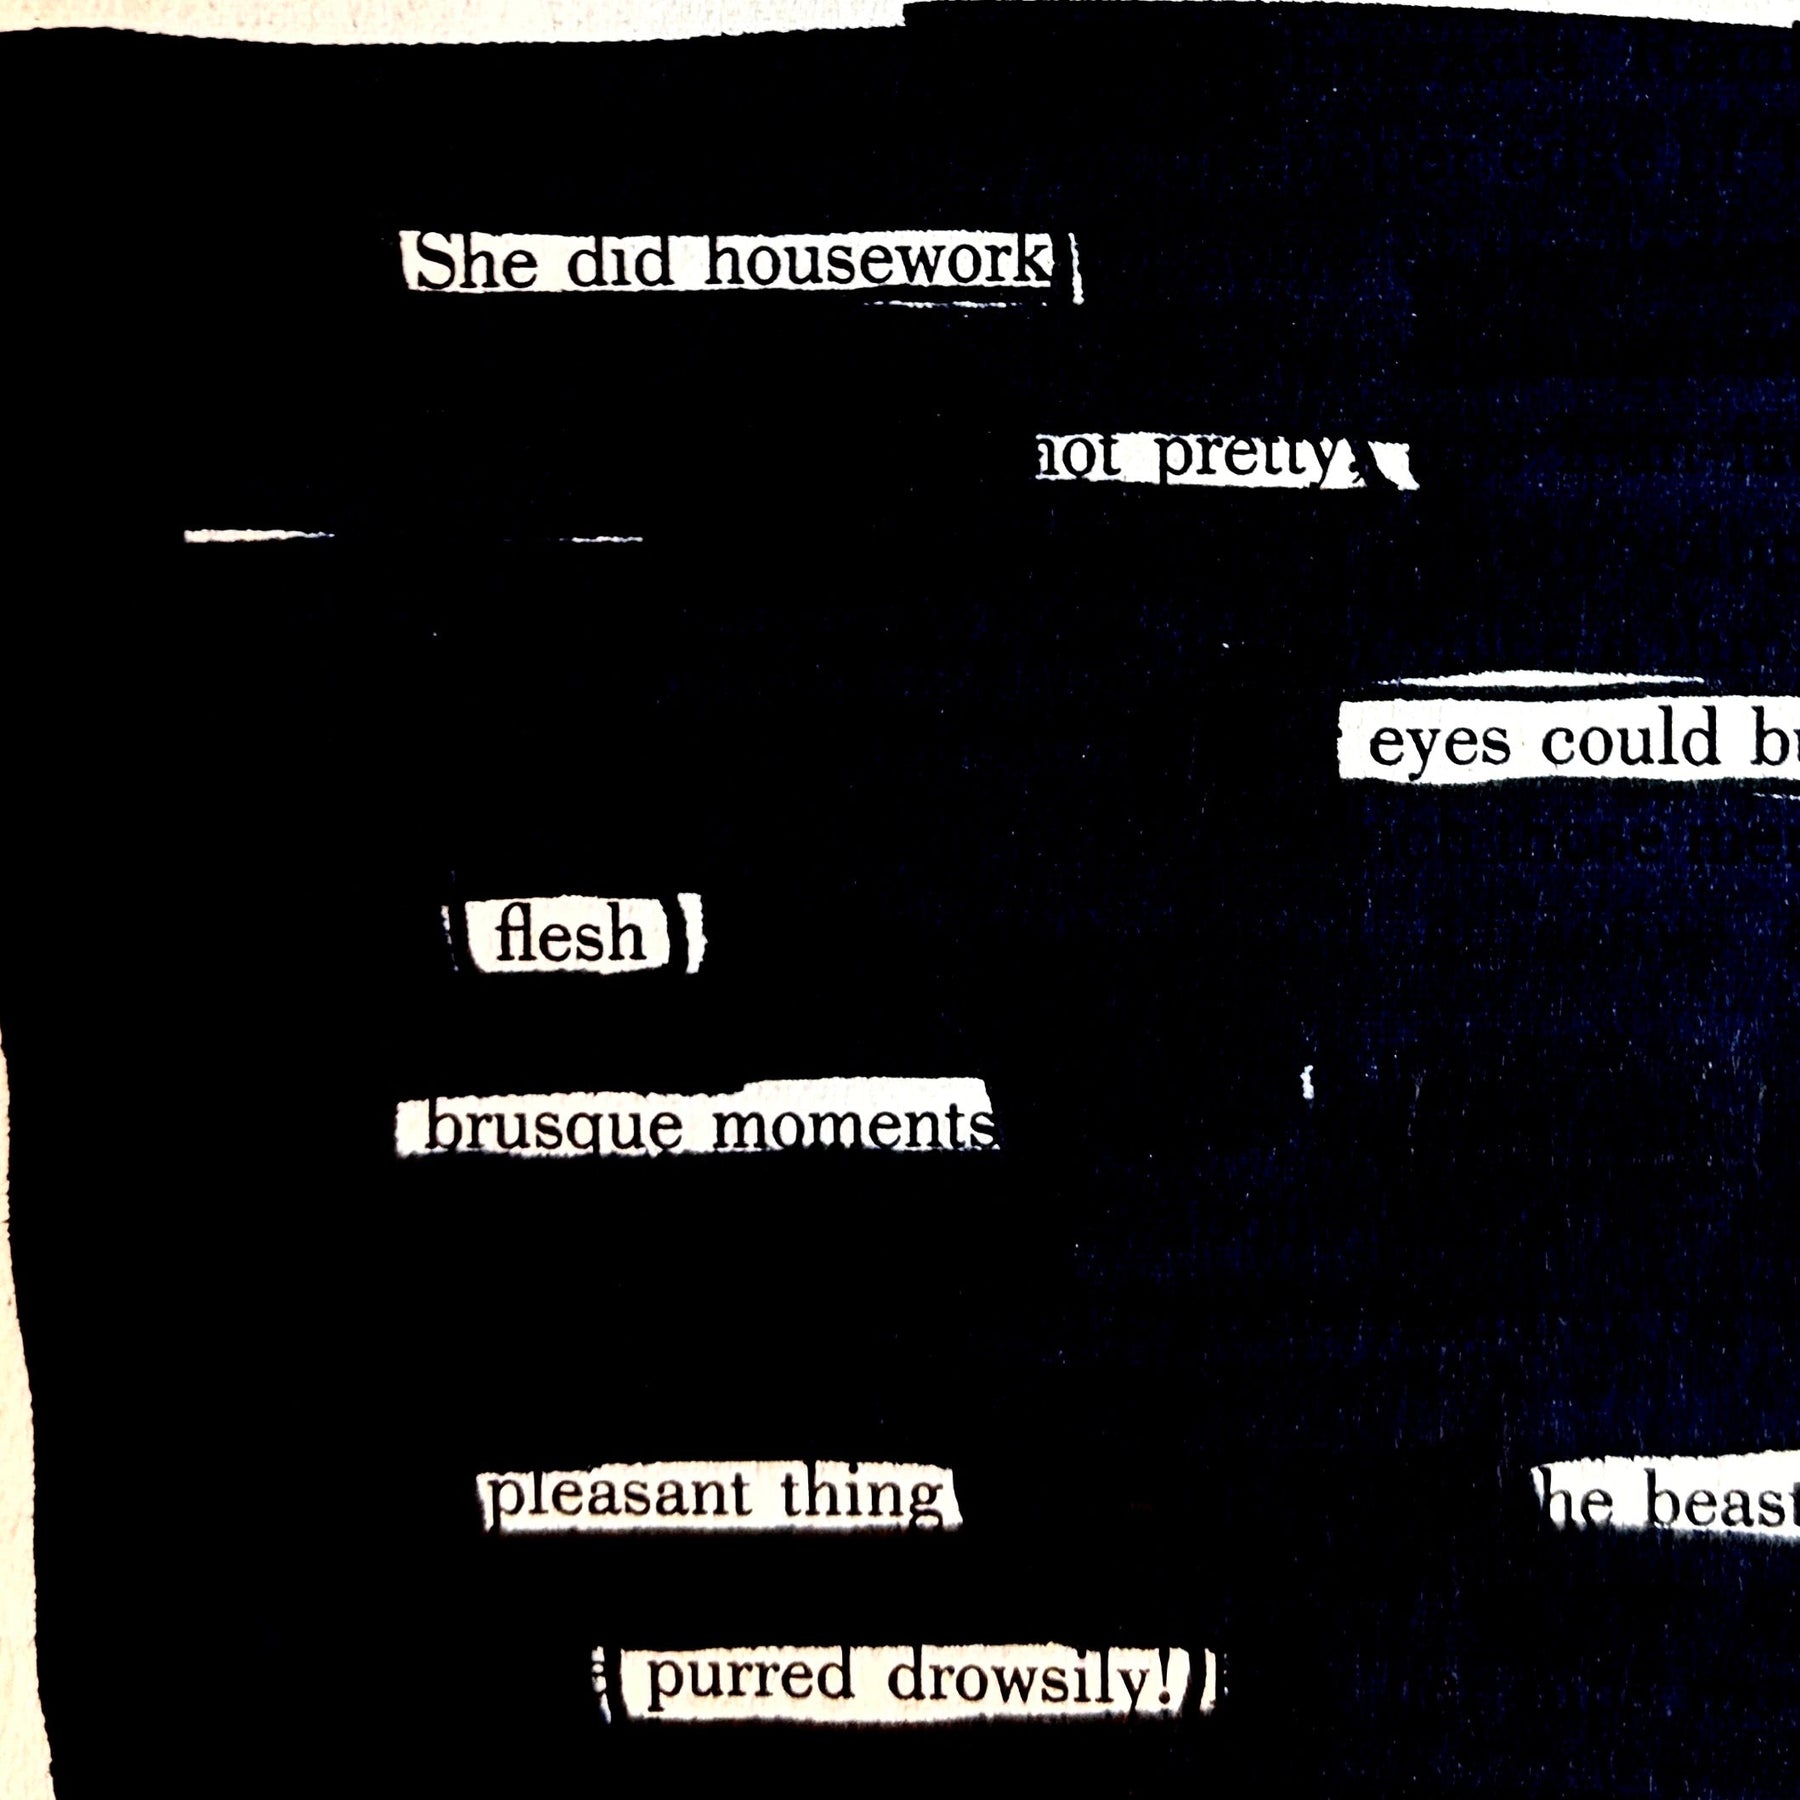 She did housework
not pretty,
eyes could
flesh
brusque moments
pleasant thing he beast
purred drowsily!